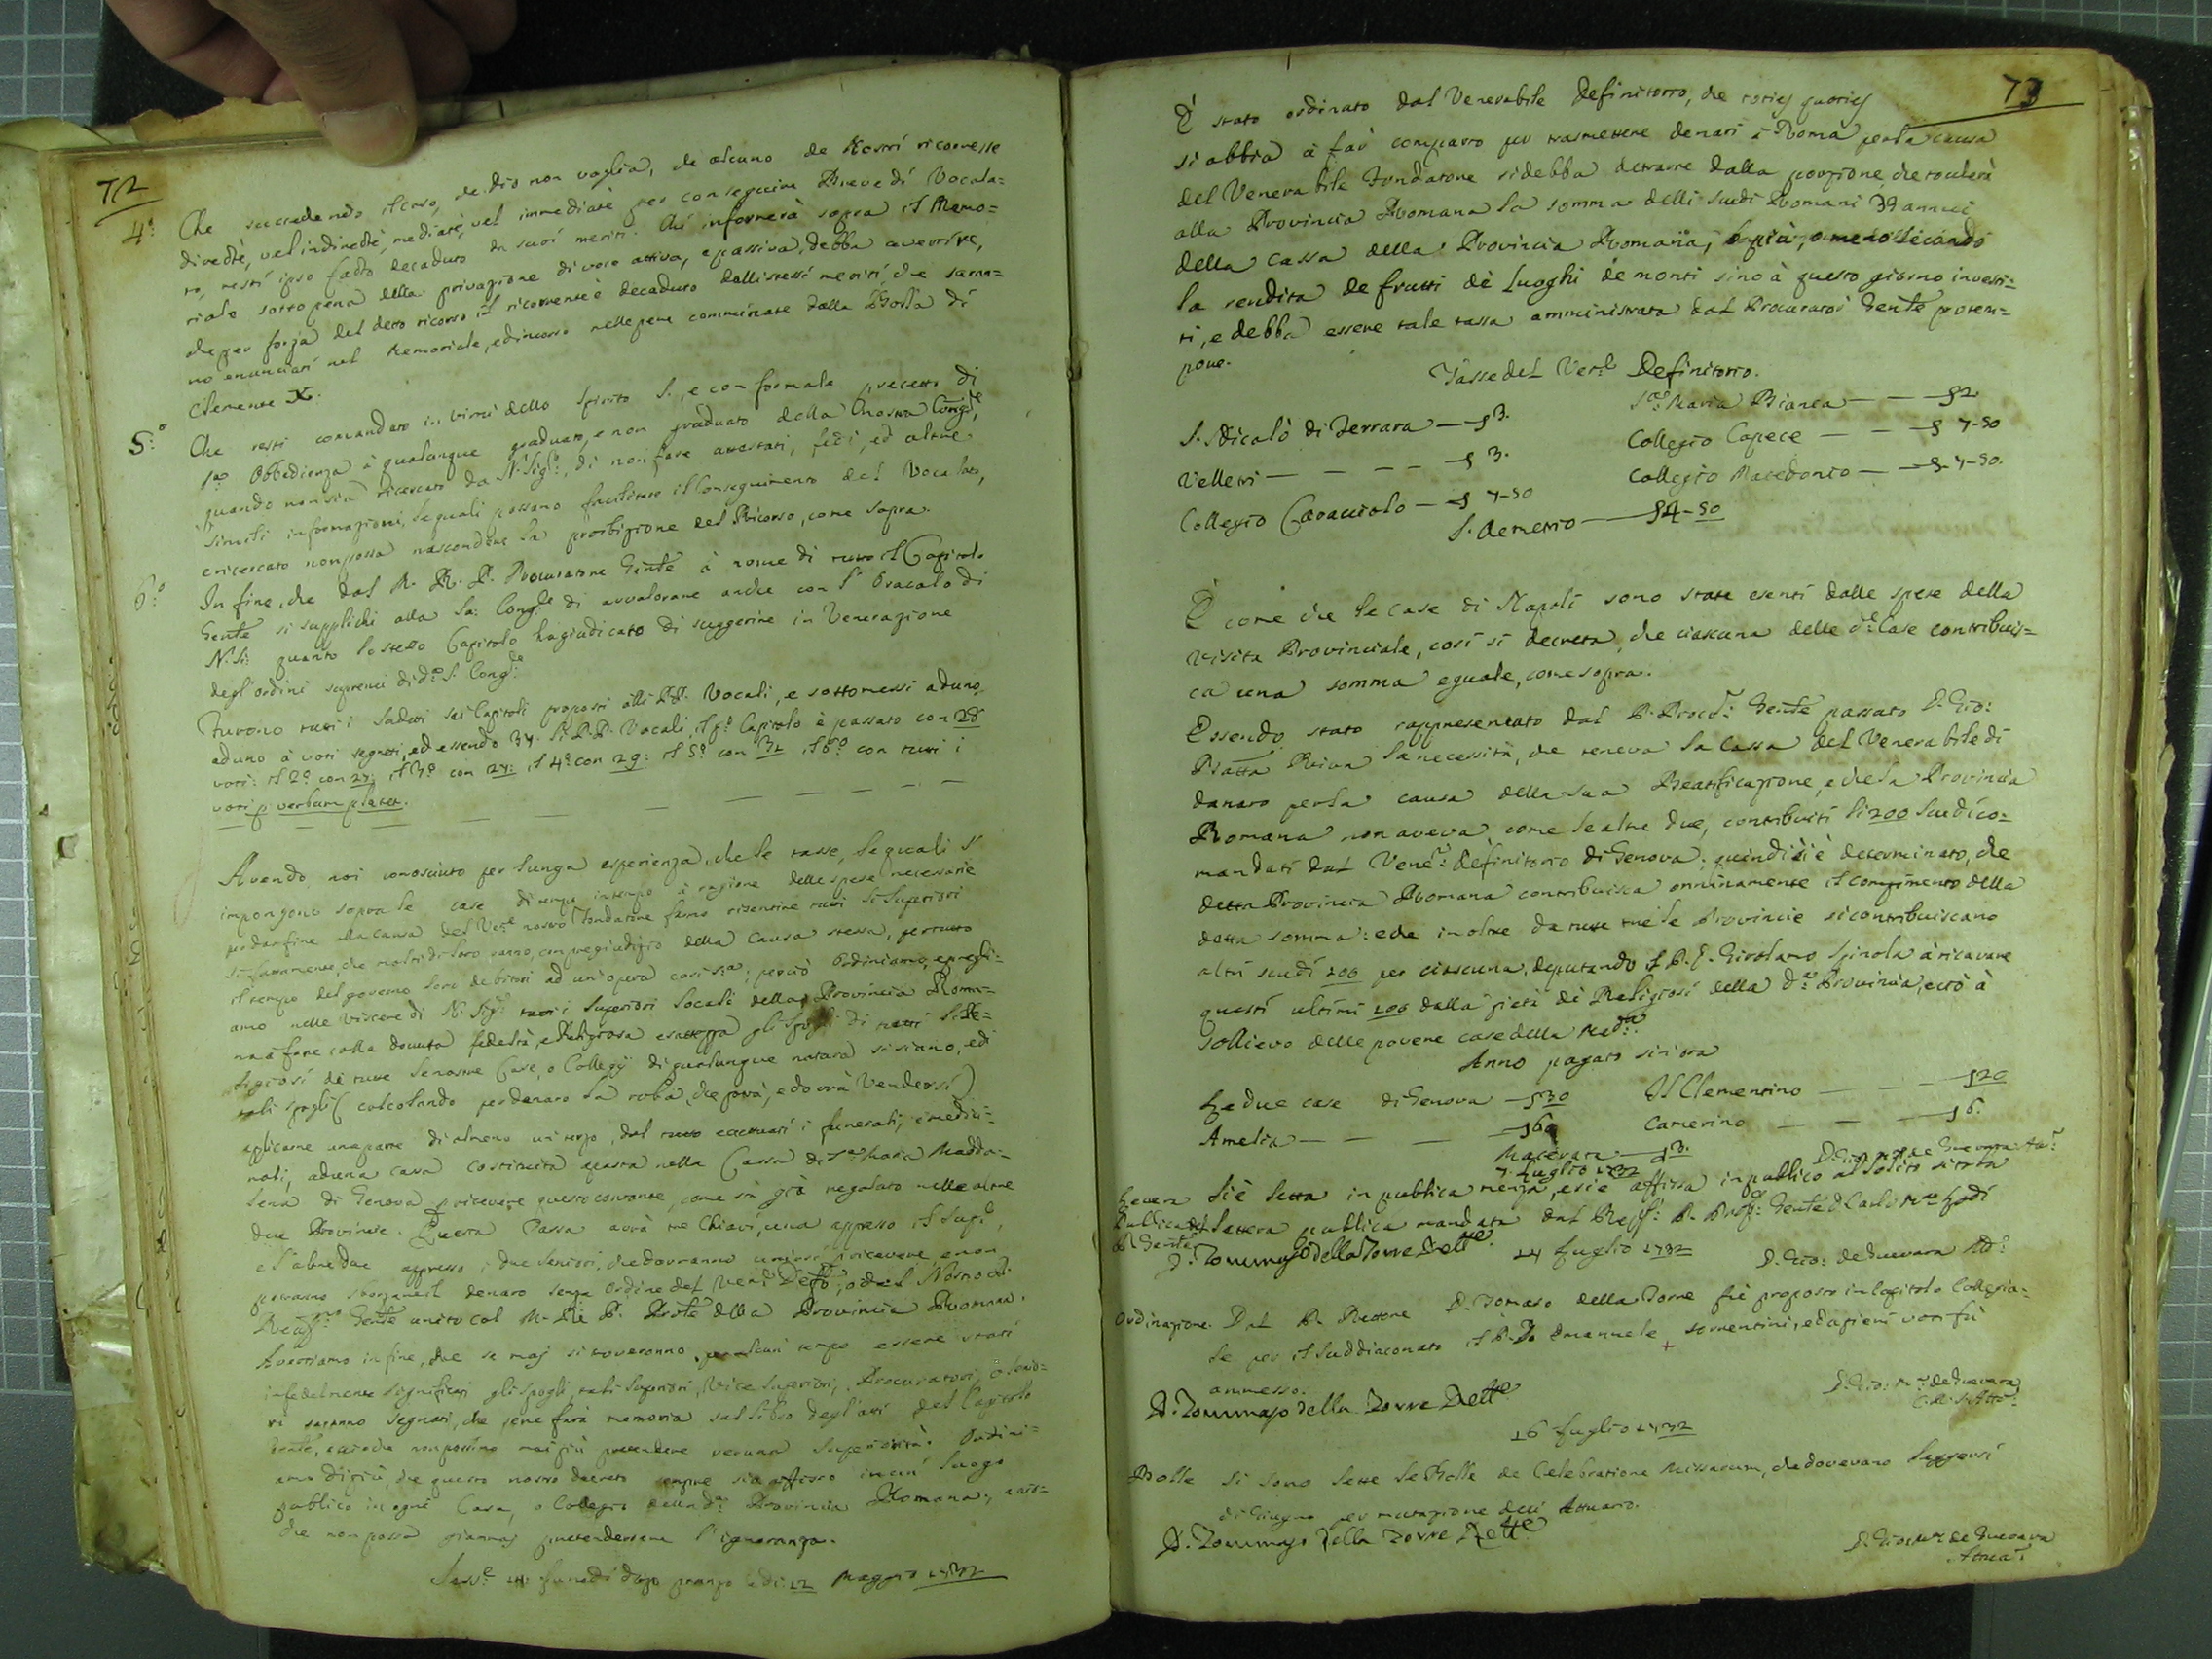 72
4.º Che succedendo il caso, che dio non voglia, che alcuno de Nostri ricorresse
directè, vel indirectè, mediatè, vel immediatè per conseguire Breve di Vocala=
to, resti ipso facto decaduto da suoi meriti. Chi informerà sopra il Memo=
riale sotto pena della privazione di voce attiva, e passiva, debba avvertire,
che per forza del detto ricorso il ricorrente è decaduto dalli stessi meriti, che saran=
no enunciati nel Memoriale, ed incorso nelle pene comminate dalla Bolla di
Clemente X.
5.º Che resti comandato in virtù dello Spirito S., e con formale precetto di
S.ª Obbedienza à qualunque graduato, e non graduato della Nostra Cong.ne,
quando non sia ricercato da N. Sig.re, di non fare attestati, fedi, ed altre
simili informazioni, le quali possano facilitare il Conseguimento del Vocalato,
e ricercato non possa nascondere la proibizione del Ricorso, come sopra.
6.º In fine, che dal M. R. P. Procuratore Gen̄te à nome di tutto il Capitolo
Gen̄te si supplichi alla Sa: Cong.ne di avvalorare anche con l'Oracolo di
N. Si: quanto lo stesso Capitolo ha giudicato di suggerire in Venerazione
degl'ordini supremi di d.ª S. Cong.ne
Furono tutti i sudetti sei Capitoli proposti alli PP. Vocali, e sottomessi ad uno,
ad uno à voti segreti, ed essendo 34. li PP. Vocali, il p.º Capitolo è passato con 28
voti: il 2.º con 24: il 3.º con 24: il 4.º con 29: il 5.º con 32 il 6.º con tutti i
voti p verbum placet.
Avendo noi conosciuto per lunga esperienza, che le tasse, le quali s'
impongono sopra le case di tempo in tempo à ragione delle spese necessarie
per dar fine alla causa del Ven.e nostro Fondatore fanno risentire tutti li Superiori
si fattamente, che molti di loro vanno, con pregiudizio della causa stessa, per tutto
il tempo del governo loro debitori ad un'opera così s.ta; perciò Ordiniamo, e preghi=
amo nelle viscere di N. Sig.re tutti i Superiori locali della Provincia Roma=
na à fare colla dovuta fedeltà, e Religiosa esattezza gli spogli di tutti li Re=
ligiosi di tutte le nostre Case, o Collegij di qualunque natura si siano, e di
tali spogli (calcolando per denaro la roba, che potrà, e dovrà Vendersi)
applicarne una parte di almeno un terzo, dal tutto eccettuati i funerali, e medici=
nali, ad una cassa costituita à posta nella Cassa di S.ª Maria Madda=
lena di Genova p ricevere questo contante, come si è già regolato nelle altre
due Provincie. Questa Cassa avrà tre Chiavi, una appresso il Sup.re,
e l'altre due appresso i due Seniori, che dovranno unirsi p ricevere, e non
potranno sborzare il denaro senza Ordine del Ven.e Deff.º, o del Nostro P.
Reu.mo Gen̄te unito col M. R. P. Prov.le della Provincia Romana.
Avvertiamo in fine, che se maj si troveranno per alcun tempo essere stati
infedelmente significati gli spogli, tali Superiori, Vice Superiori, Procuratori, o Senio=
ri saranno segnati, che se ne farà memoria sul libro degl'atti del Capitolo
Gen̄te, acciochè non possino mai più pretendere veruna Superiorità. Ordini=
amo di più, che questo nostro decreto sempre sia affisso in un luogo
publico in ogni Casa, o Collegio della d.ª Provincia Romana, accio=
chè non possa giammaj pretendersene l'ignoranza.
lunedì dopo pranzo le di 12 Maggio 1732
73
È stato ordinato dal Venerabile Definitorio, che toties quoties
si abbia à far comparto per trasmettere denari à Roma per la causa
del Venerabile Fondatore si debba detrarre dalla porzione, che toccherà
alla Provincia Romana la somma delli scudi Romani 39 annui
della Cassa della Provincia Romana, ò più, ò meno secondo
la rendita de frutti de Luoghi de monti sino à questo giorno investi=
ti, e debba essere tale tassa amministrata dal Procurator Gen̄te protem=
pore.
Tasse del Ven.e Definitorio.
S. Nicolò di Ferrara — § 3. S.ª Maria Bianca — — § 2
Velletri — — — — § 3. Collegio Capece — — § 7-50
Collegio Caracciolo — § 7-50 Collegio Macedonio — — § 7-50.
S. Demetrio — § 4-50
E come che le Case di Napoli sono state esenti dalle spese della
Visita Provinciale, così si decreta, che ciascuna delle d.e Case contribuis=
ca una somma eguale, come sopra.
Essendo stato rappresentato dal P. Proc.r Gen̄te passato D. Gio:
Batta Riva la necessità, che teneva la Cassa del Venerabile di
danaro per la causa della sua Beatificazione, e che la Provincia
Romana non aveva, come le altre due, contribuiti li 200 scudi co=
mandati dal Vene.e definitorio di Genova: quindi si è determinato, che
detta Provincia Romana contribuisca onninamente il compimento della
detta somma: e che inoltre da tutte tre le Provincie si contribuiscano
altri scudi 200 per ciascuna, deputando il P. D. Girolamo Spinola à ricavare
questi ultimi 200 dalla pietà de Religiosi della d.ª Provincia, e ciò à
sollievo delle povere case della Med.ma
Anno pagato sin ora
Le due case di Genova — § 30 Il Clementino — — — § 20
Amelia — — — § 6 Camerino — — — § 6.
Macerata — § 3. D. Gio: M.ª de Guevara Att.º
7. Luglio 1732
Lettera Publica del P. Gen̄te Si è letta in publica mensa, e si è affissa in publico al solito
Lettera publica mandata dal Reu.mo P. Prep.to Gen̄te D. Carlo M.ª Lodi
D. Tommaso della Torre Rett.e 14 Luglio 1732 D. Gio: de Guevara Att.º
Ordinazione. Dal P. Rettore D. Tomaso della Torre fù proposto in Capitolo Collegia=
le per il Suddiaconato il P. D. Emanuele + Sorrentini, ed à pieni voti fù
ammesso.
D. Tommaso della Torre Rett.e D. Gio: M.ª de Guevara
C. R. S. Att.º
16 Luglio 1732
Bolle Si sono lette le Bolle de Celebratione Missarum, che dovevano leggersi
di Giugno per mutazione dell' Attuario.
D. Tommaso della Torre Rett.e D. Gio: M.ª de Guevara
Attua.º